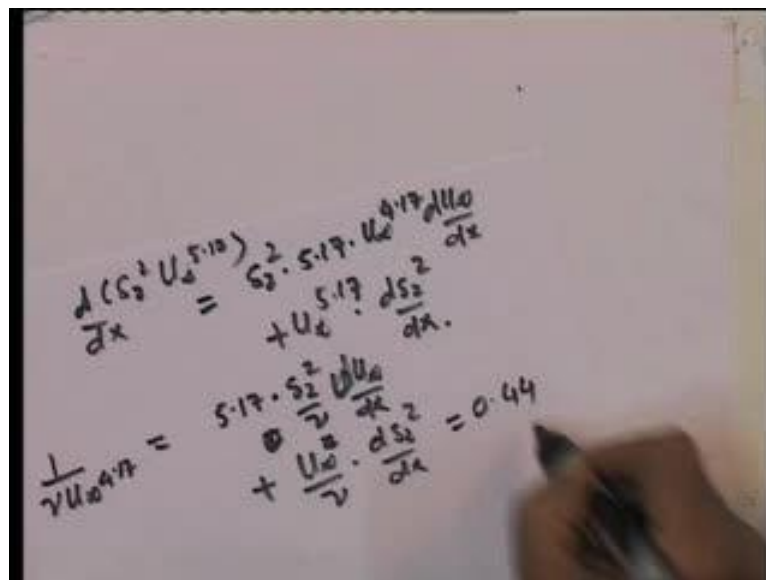 d/dx (δ₂² U∞^5.17) = δ₂² · 5.17 · U∞^4.17 dU∞/dx
+ U∞^5.17 · dδ₂²/dx.
1/(ν U∞^4.17) = 5.17 · δ₂²/ν dU∞/dx
+ U∞/ν · dδ₂²/dx = 0.44